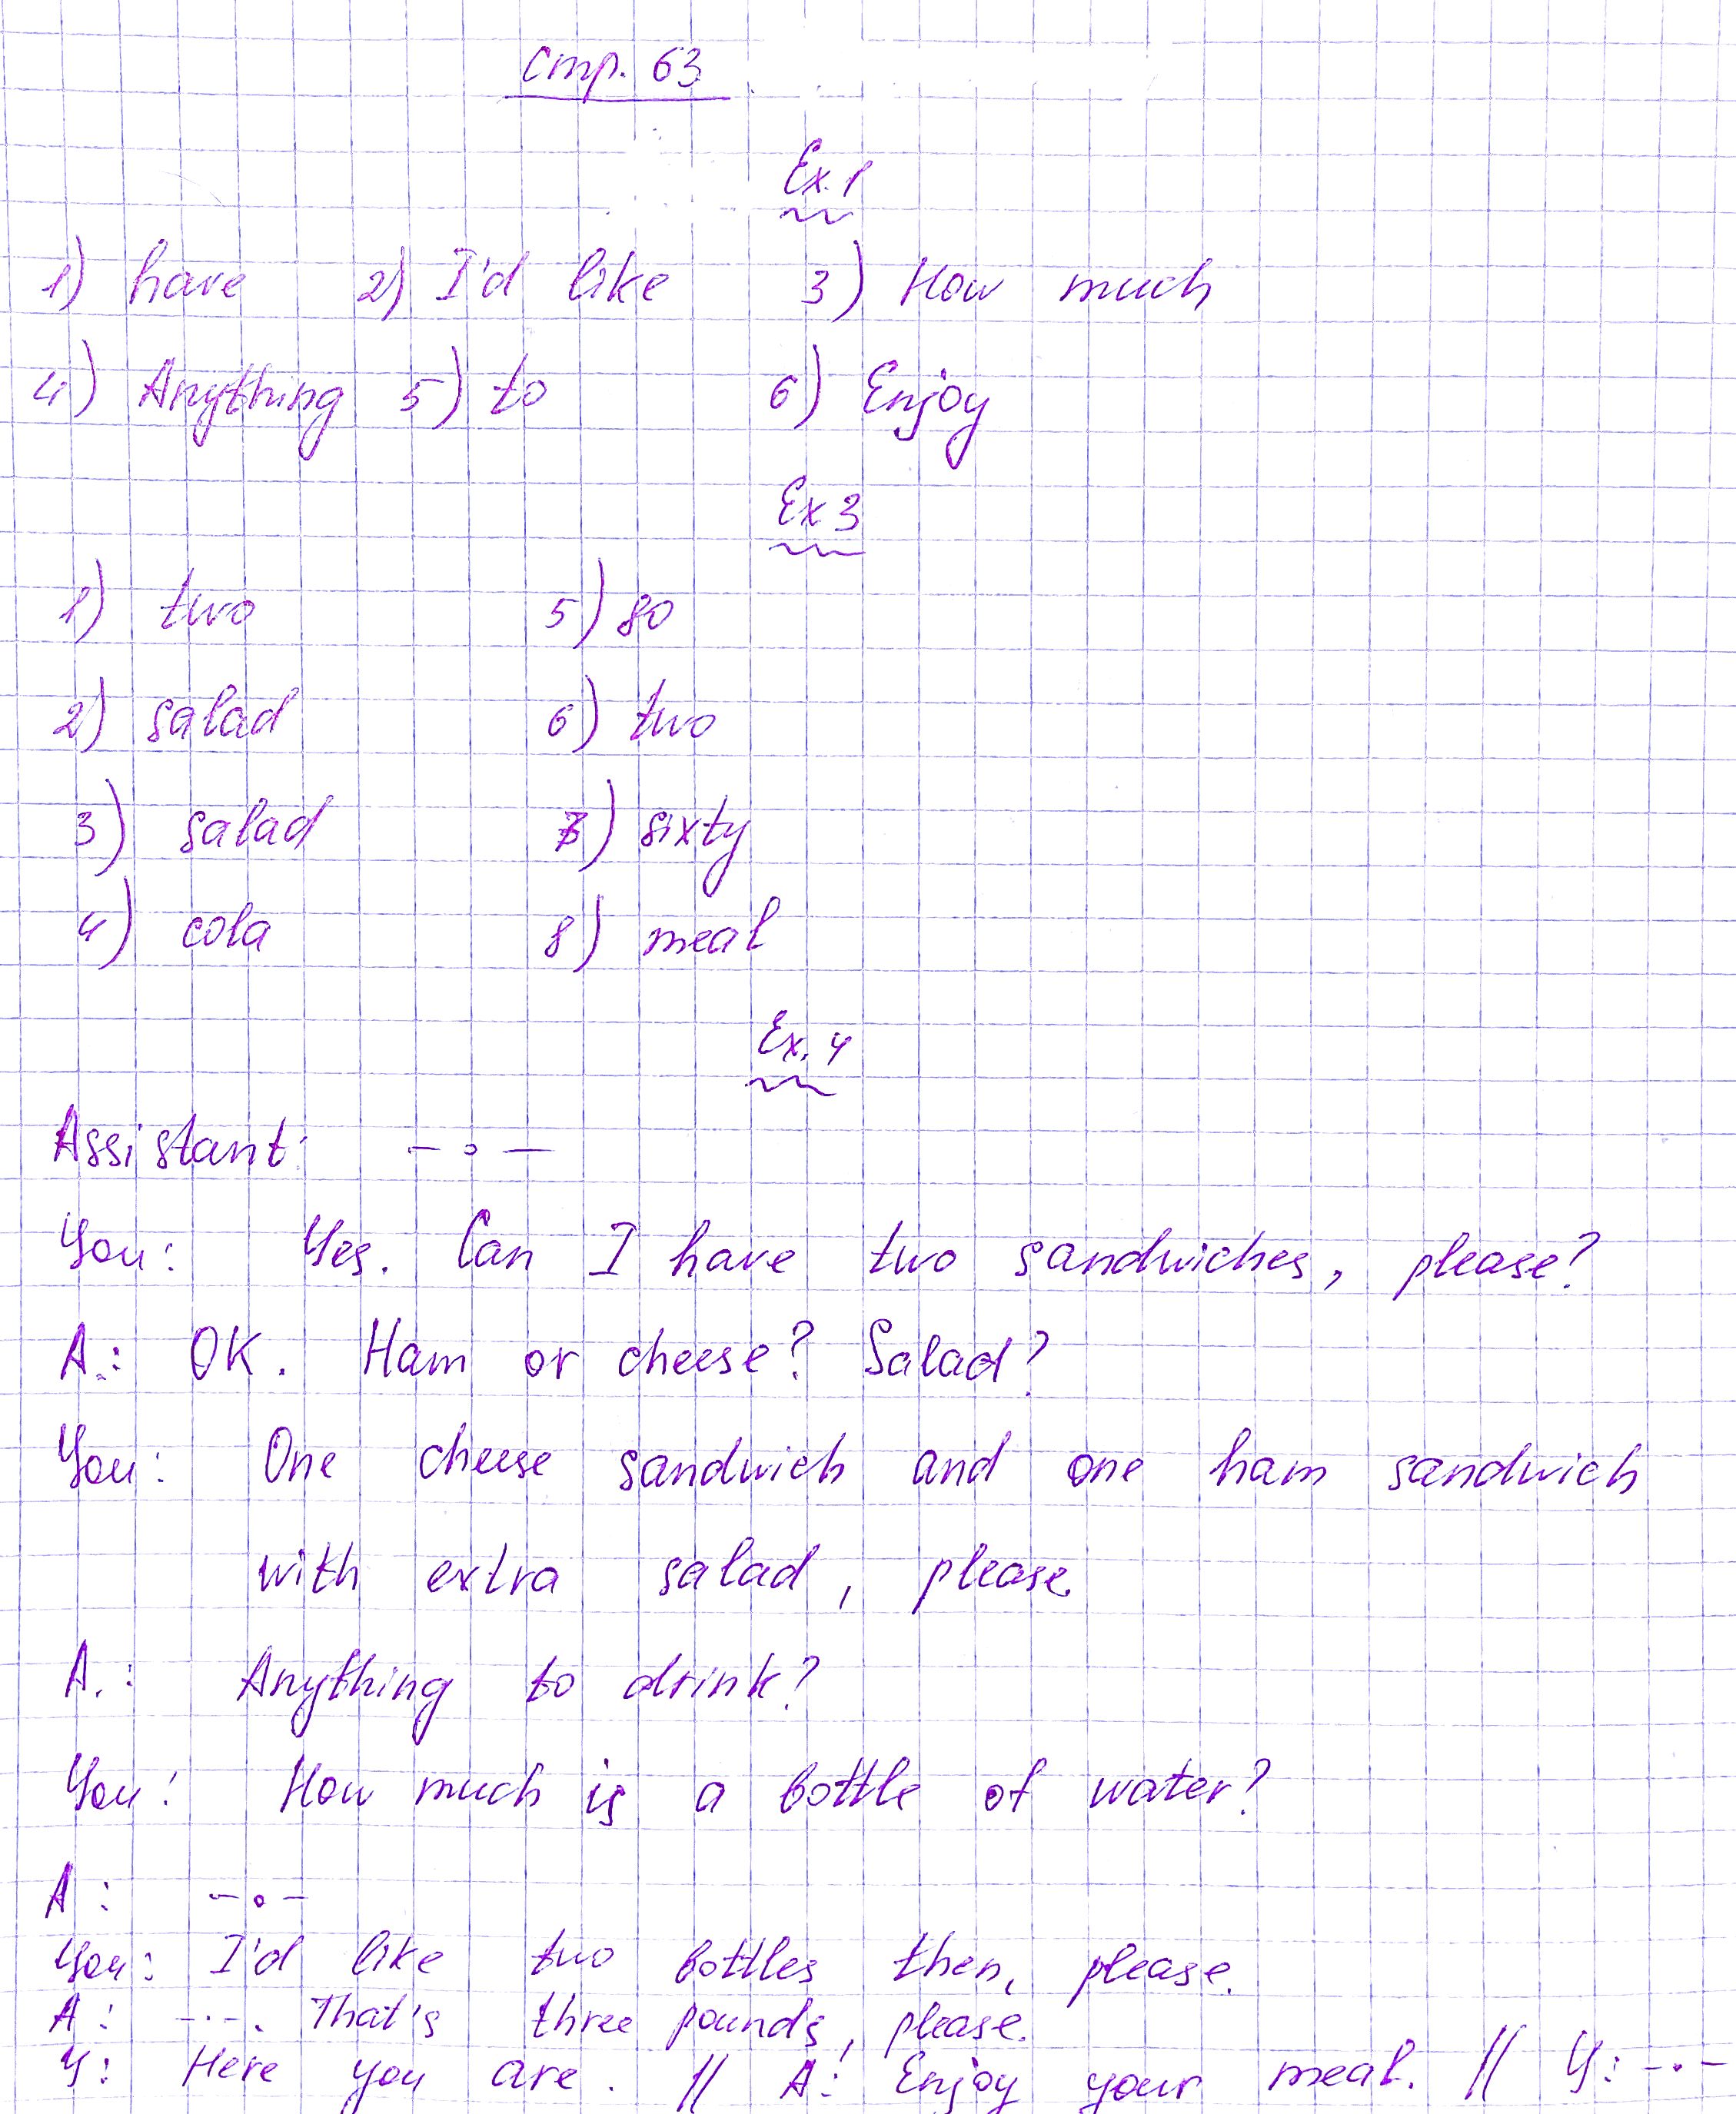 стр. 63
Ex. 1
1) have 2) I'd like 3) How much
4) Anything 5) to 6) Enjoy
Ex 3
1) two 5) 80
2) salad 6) two
3) salad 7) sixty
4) cola 8) meal
Ex. 4
Assistant: — ∘ —
You: Yes. Can I have two sandwiches, please?
A.: OK. Ham or cheese? Salad?
You: One cheese sandwich and one ham sandwich
with extra salad, please.
A.: Anything to drink?
You: How much is a bottle of water?
A: -∘-
You: I'd like two bottles then, please.
A: -·-. That's three pounds, please.
Y: Here you are. // A: Enjoy your meal. // Y: -·-